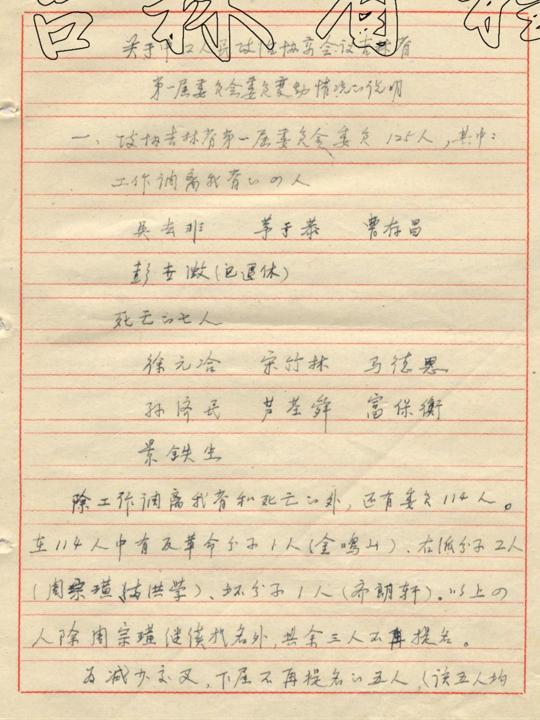 吉林省
关于中国人民政治协商会议吉林省
第一届委员会委员变动情况的说明
一、政协吉林省第一届委员会委员125人，其中：
工作调离我省的四人
吴去非 茅于恭 曹存昌
彭世澂(已退休)
死亡的七人
徐元冶 宋竹林 马德恩
孙济民 芦荃舜 富保衡
景铁生
除工作调离我省和死亡的外，还有委员114人。
在114人中有反革命分子1人(金鸣山)、右派分子2人
(周宗璜、洪荣)、坏分子1人(齐朗轩)。以上四
人除周宗璜继续提名外，其余三人不再提名。
为减少交叉，下届不再提名的五人，(该五人均